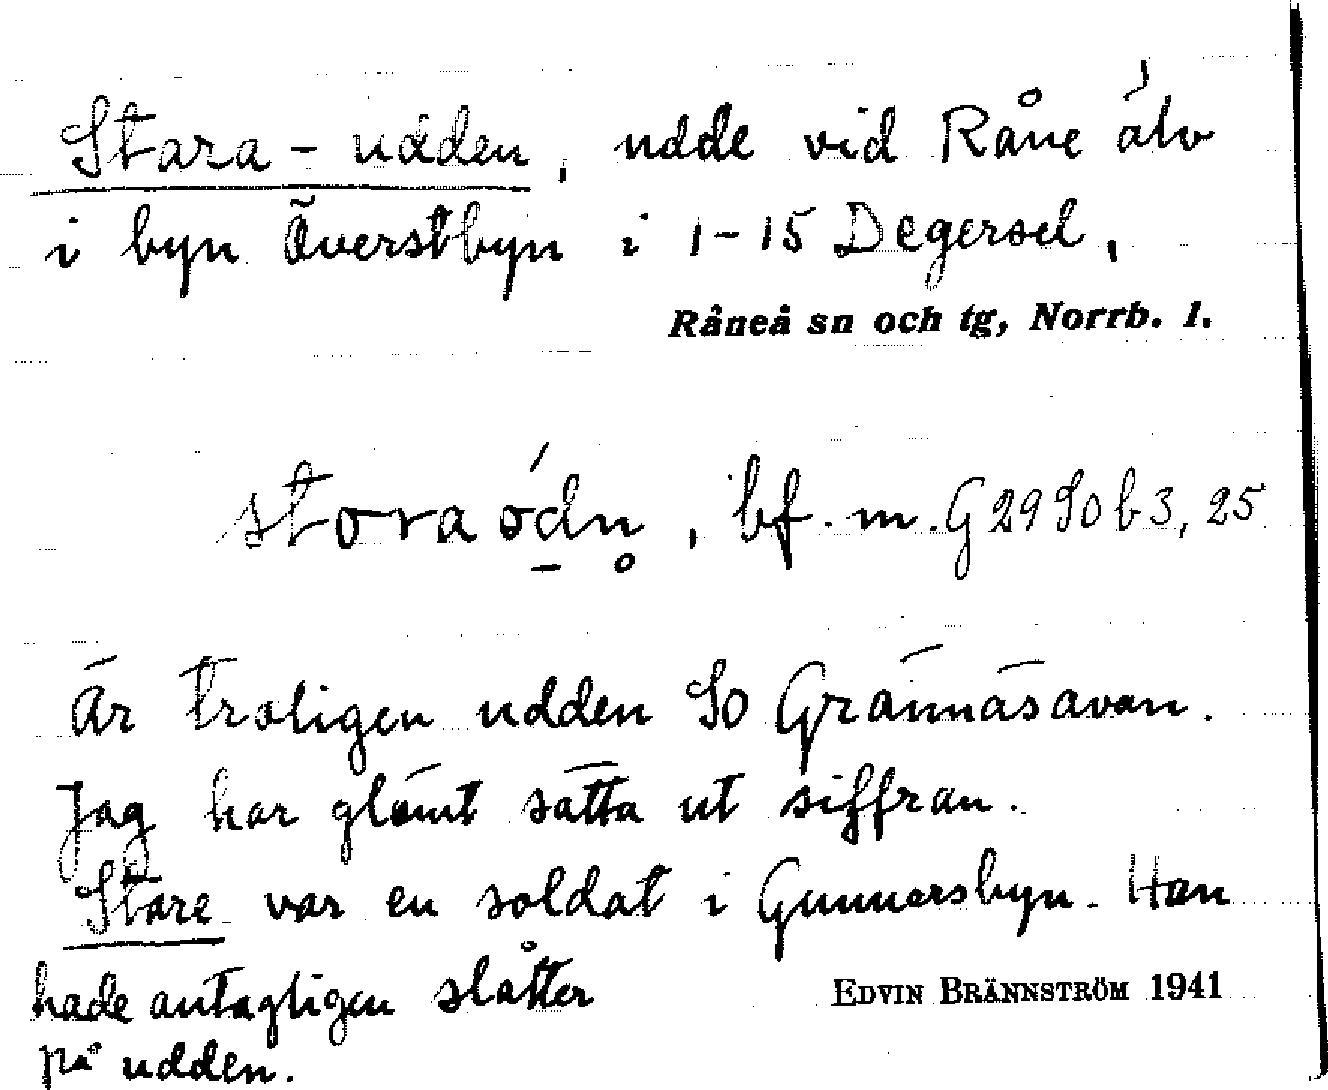 Stara-udden, udde vid Råne älv
i byn Överstbyn i 1-15 Degersel,
Råneå sn och tg, Norrb. l.
stora ódn̥, bf. m. G 29 So b 3, 25
Är troligen udden So Grännäsavan.
Jag har glömt sätta ut siffran.
Stare var en soldat i Gunnarsbyn. Han
hade antagligen slåtter
på udden.
EDVIN BRÄNNSTRÖM 1941